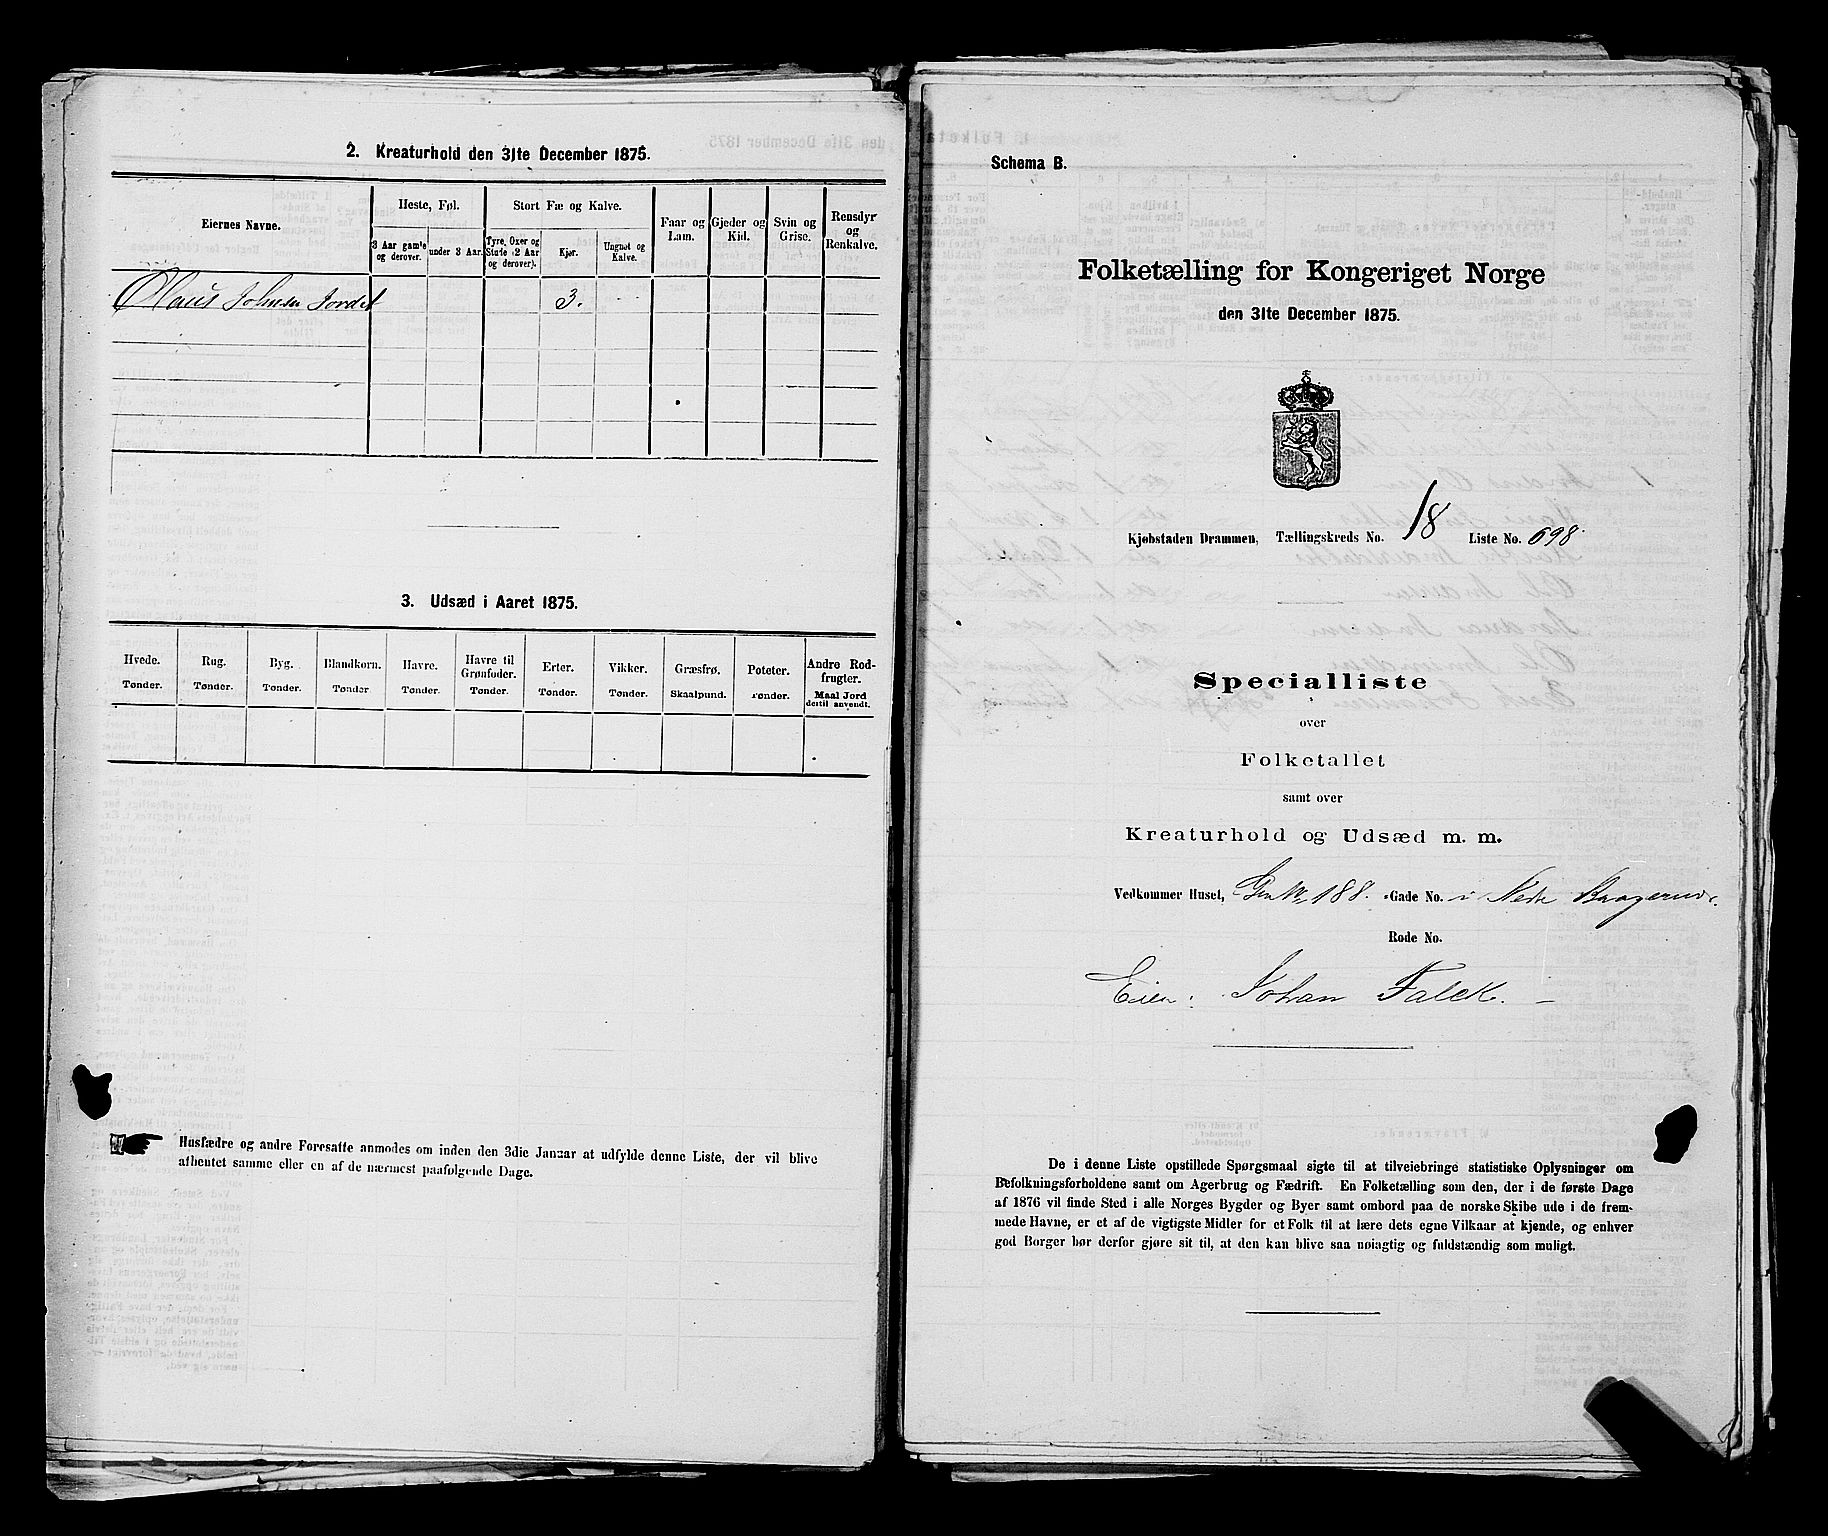 2. Kreaturhold den 31te December 1875.
Eiernes Navne.
Heste, Føl.
Stort Fæ og Kalve.
Faar og Lam.
Gjeder og Kid.
Svin og Grise.
Rensdyr og Renkalve.
3 Aar gamle og derover.
under 3 Aar.
Tyre, Oxer og Stude (2 Aar og derover).
Kjør.
Ungnøt og Kalve.
Olaus Johnsen Jordet 3.
3. Udsæd i Aaret 1875.
Hvede. Tønder.
Rug. Tønder.
Byg. Tønder.
Blandkorn. Tønder
Havre. Tønder.
Havre til Grønfoder. Tønder.
Erter. Tønder.
Vikker. Tønder.
Græsfrø. Skaalpund.
Poteter. Tønder.
Andre Rodfrugter. Maal Jord dertil anvendt.
Husfædre og andre Foresatte anmodes om inden den 3die Januar at udfylde denne Liste, der vil blive
afhentet samme eller en af de nærmest paafølgende Dage.
Schema B.
Folketælling for Kongeriget Norge
den 31te December 1875.
Kjøbstaden Drammen, Tællingskreds No. 18 Liste No. 698.
Specialliste
over
Folketallet
samt over
Kreaturhold og Udsæd m. m.
Vedkommer Huset, 188. Gade No. i Nedre
Rode No.
Eier: Johan Falck.
De i denne Liste opstillede Spørgsmaal sigte til at tilveiebringe statistiske Oplysninger om
Befolkningsforholdene samt om Agerbrug og Fædrift. En Folketælling som den, der i de første Dage
af 1876 vil finde Sted i alle Norges Bygder og Byer samt ombord paa de norske Skibe ude i de frem-
mede Havne, er et af de vigtigste Midler for et Folk til at lære dets egne Vilkaar at kjende, og enhver
god Borger bør derfor gjøre sit til, at den kan blive saa nøiagtig og fuldstændig som muligt.